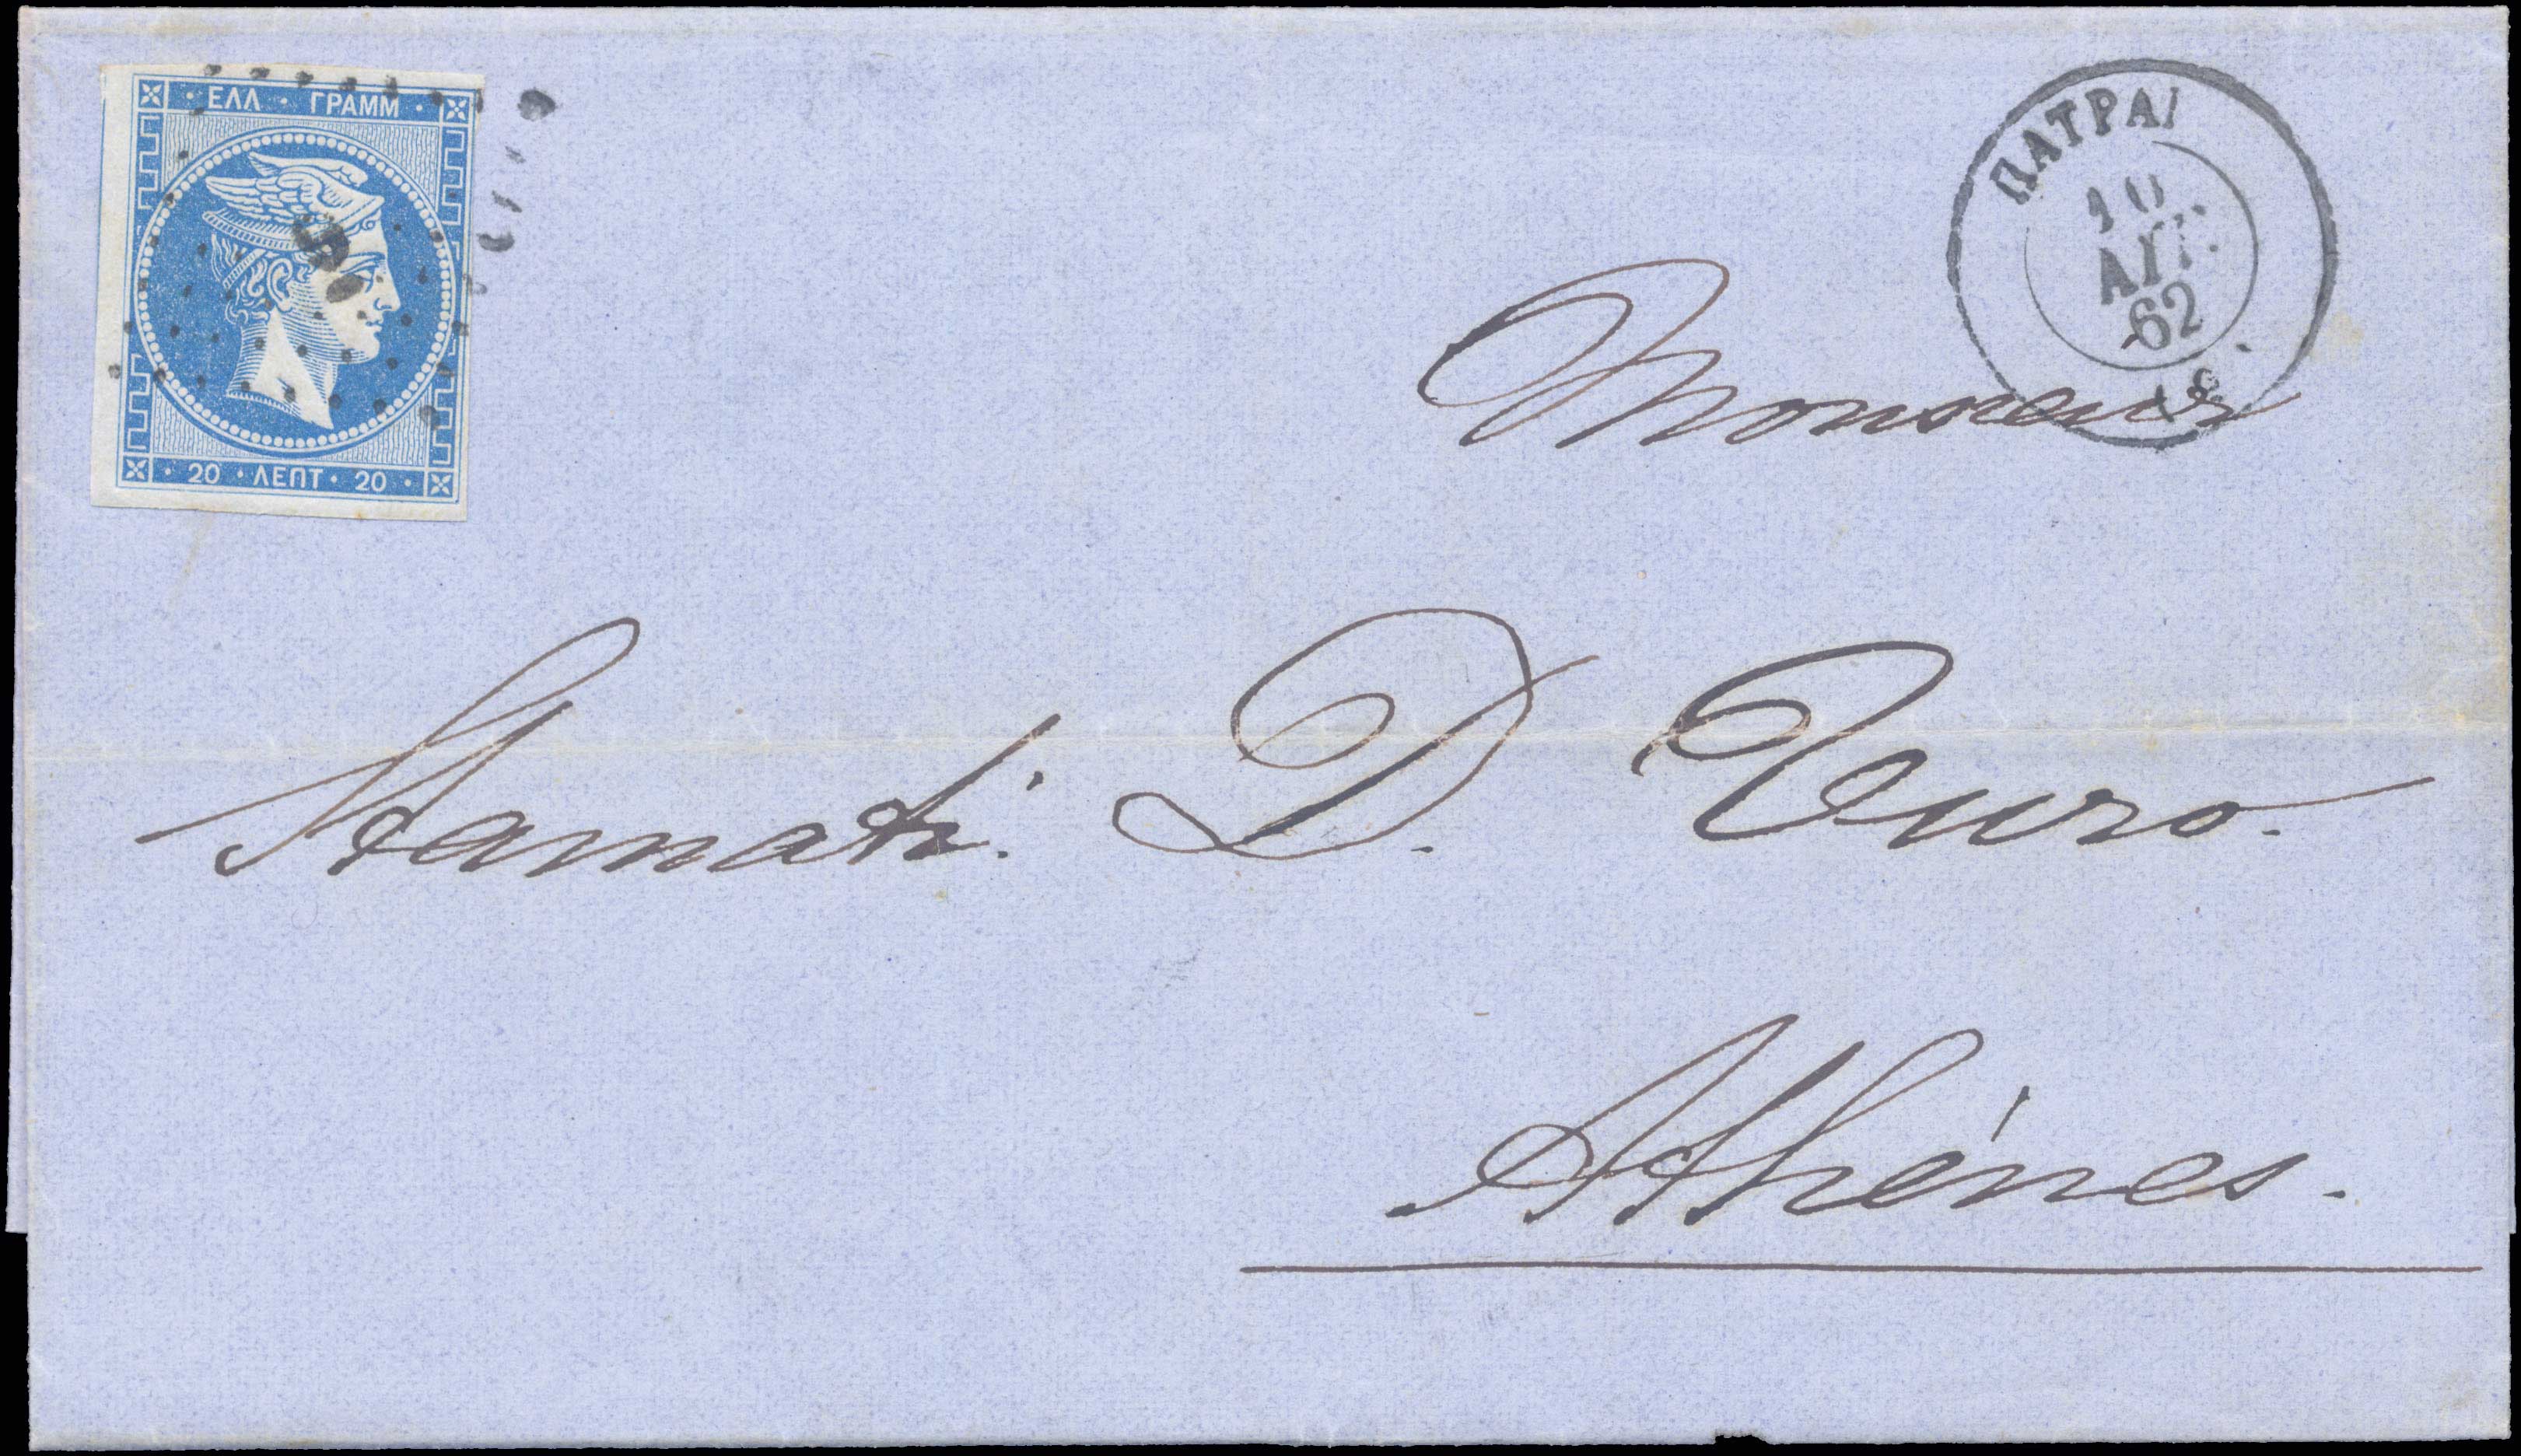 · ΕΛΛ · ΓΡΑΜΜ ·
· 20 · ΛΕΠΤ · 20 ·
9
ΠΑΤΡΑΙ
10
ΑΠΡ.
62
Monsieur
Stamati D. Curo.
Athénes.